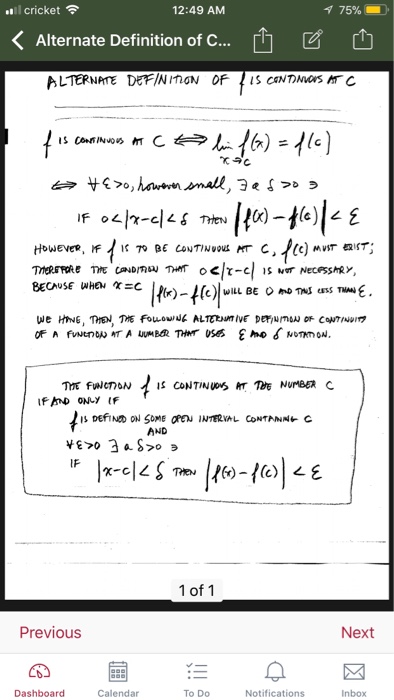 cricket 12:49 AM 75%
Alternate Definition of C...
ALTERNATE DEFINITION OF f IS CONTINUOUS AT C
f IS CONTINUOUS AT C ⟺ lim f(x) = f(c)
x→c
⟺ ∀ε>0, however small, ∃ a δ>0 ∋
IF 0<|x-c|<δ THEN |f(x)-f(c)|<ε
HOWEVER, IF f IS TO BE CONTINUOUS AT C, f(c) MUST EXIST;
THEREFORE THE CONDITION THAT 0<|x-c| IS NOT NECESSARY,
BECAUSE WHEN x=c |f(x)-f(c)| WILL BE 0 AND THUS LESS THAN ε.
WE HAVE, THEN, THE FOLLOWING ALTERNATIVE DEFINITION OF CONTINUITY
OF A FUNCTION AT A NUMBER THAT USES ε AND δ NOTATION.
THE FUNCTION f IS CONTINUOUS AT THE NUMBER C
IF AND ONLY IF
f IS DEFINED ON SOME OPEN INTERVAL CONTAINING C
AND
∀ε>0 ∃ a δ>0 ∋
IF |x-c|<δ THEN |f(x)-f(c)|<ε
1 of 1
Previous Next
Dashboard Calendar To Do Notifications Inbox